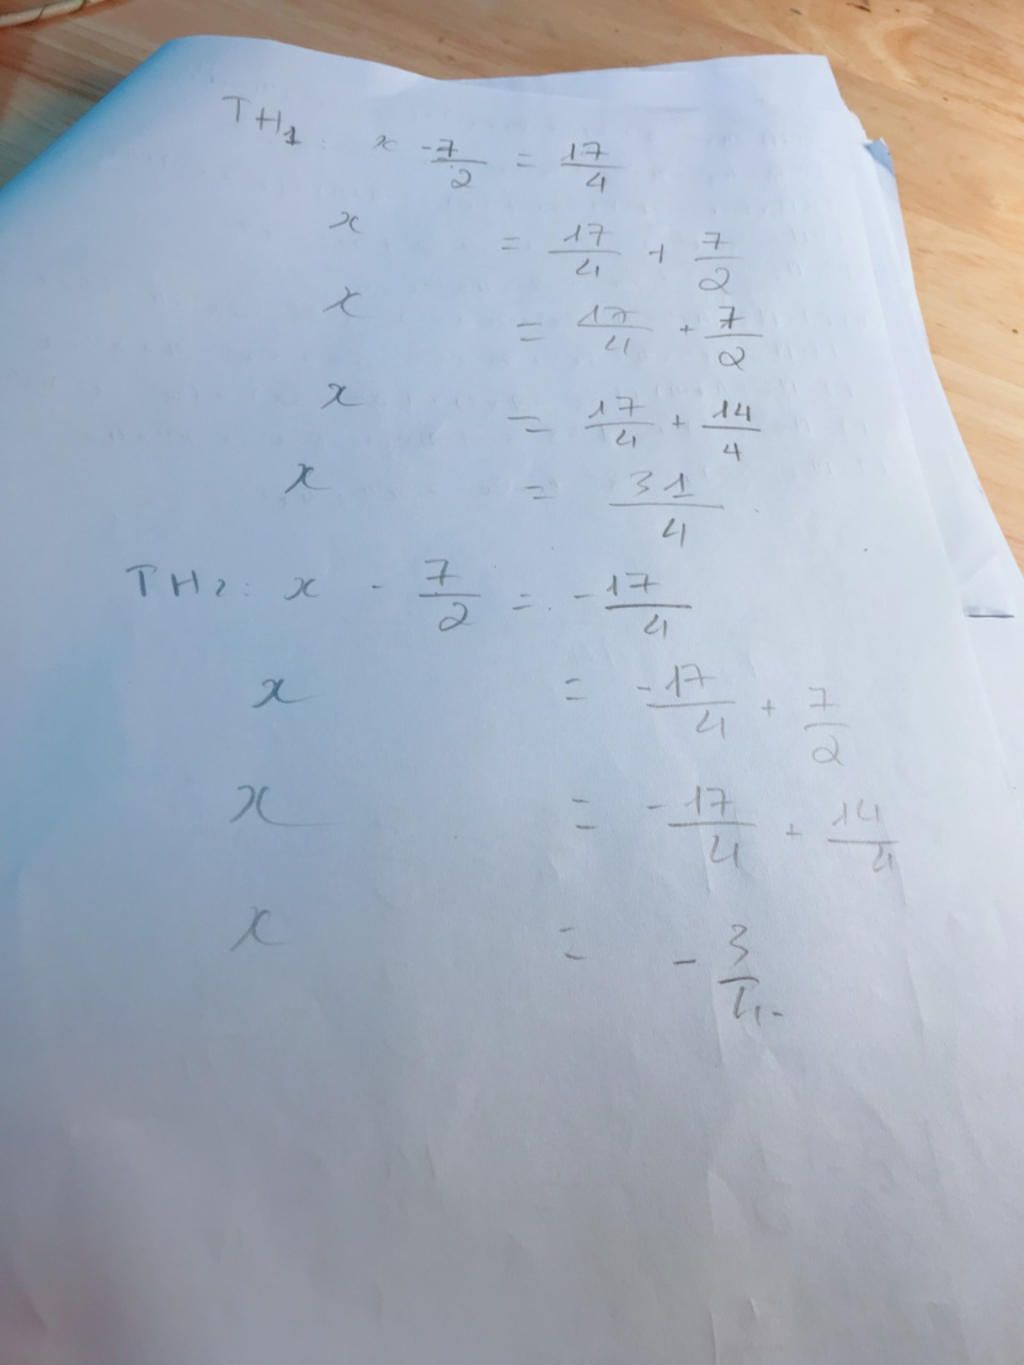 TH1: x - 7/2 = 17/4
x = 17/4 + 7/2
x = 17/4 + 7/2
x = 17/4 + 14/4
x = 31/4
TH2: x - 7/2 = - 17/4
x = - 17/4 + 7/2
x = - 17/4 + 14/4
x = - 3/4